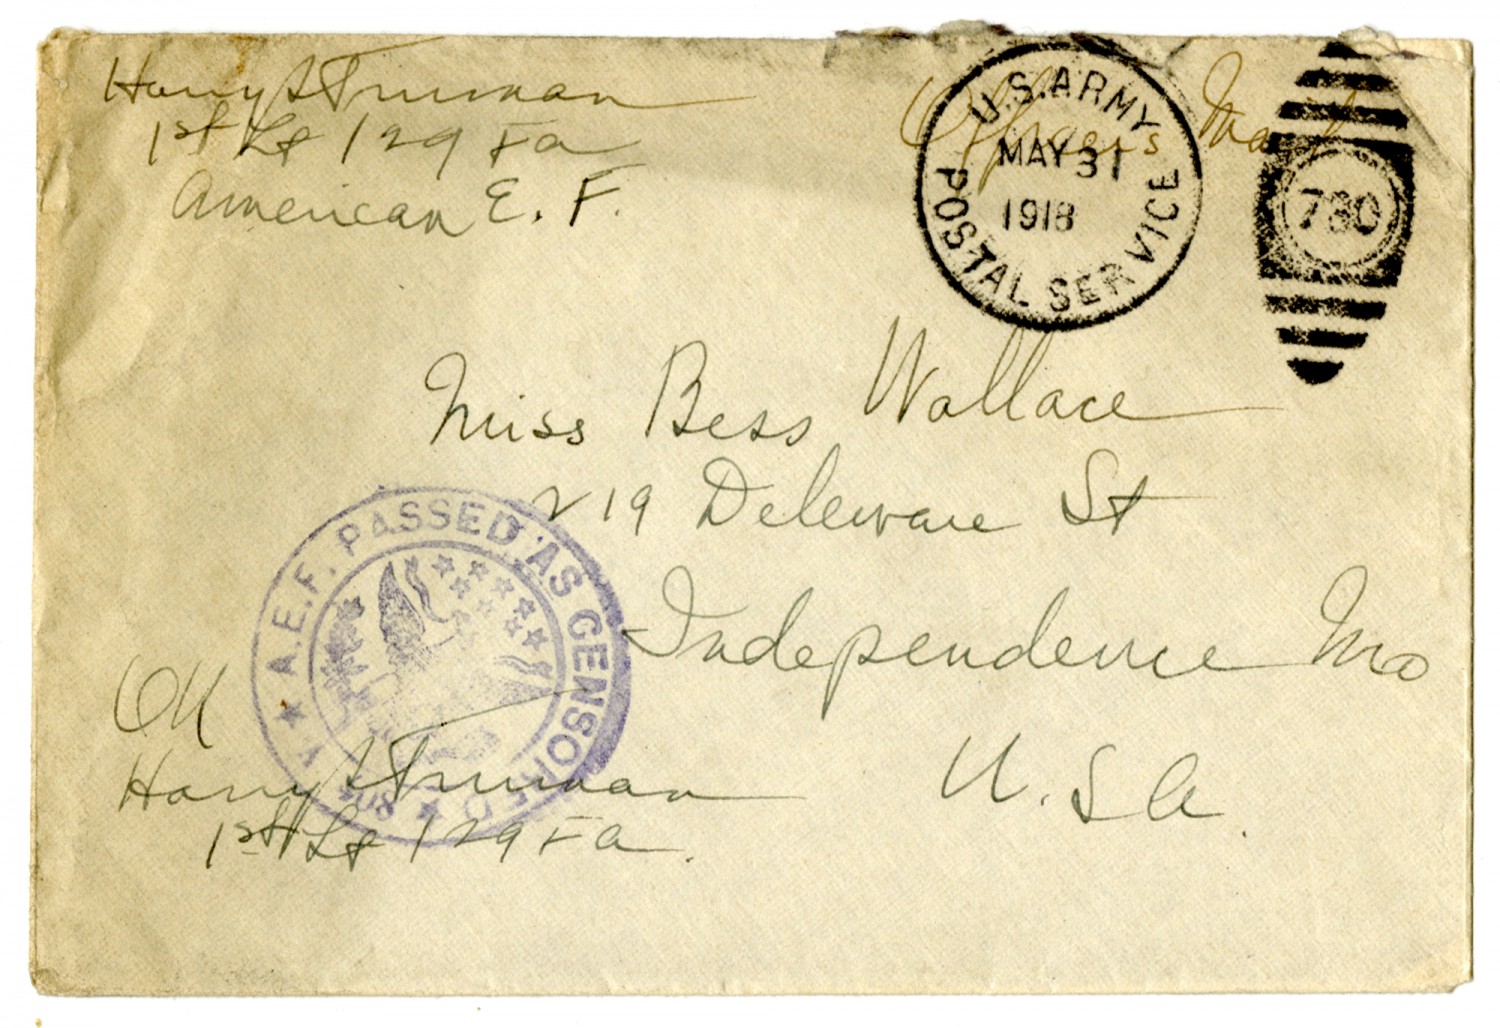 Harry S Truman
1st Lt 129 FA
American E. F.
Officers Mail
U.S. ARMY
POSTAL SERVICE
MAY 31
1918
780
Miss Bess Wallace
219 Deleware St
Independence Mo
U.S.A.
A.E.F. PASSED AS CENSORED
OK
Harry S Truman
1st Lt 129 FA.